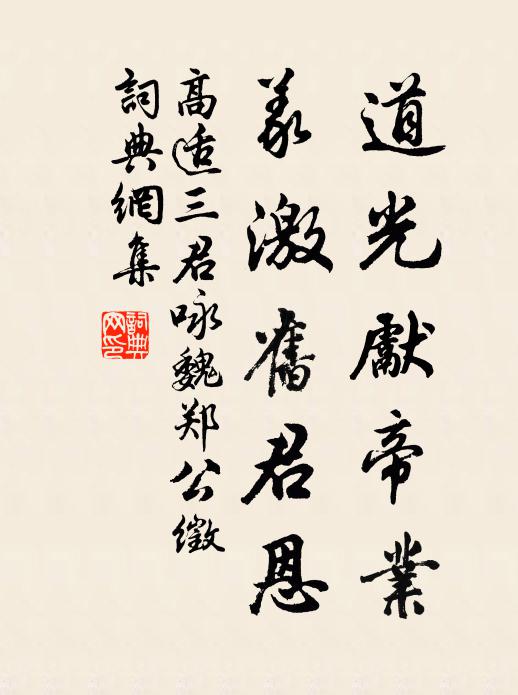 道光獻帝業
義激舊君恩
高适三君咏魏郑公徵
詞典網集
詞典
网印